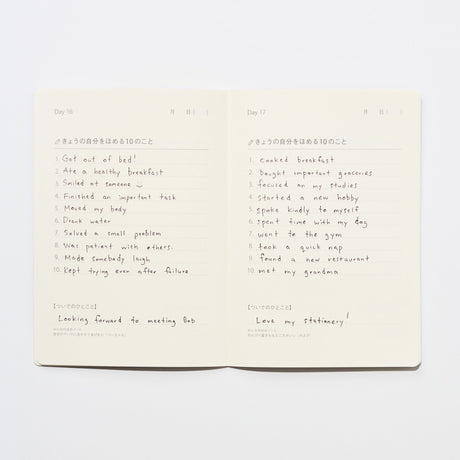 Day 16 月 日( )
きょうの自分をほめる10のこと
1. Got out of bed!
2. Ate a healthy breakfast
3. Smiled at someone
4. Finished an important task
5. Moved my body
6. Drank water
7. Solved a small problem
8. Was patient with others.
9. Made somebody laugh
10. Kept trying even after failure
【ついでのひとこと】
Looking forward to meeting Bob
Day 17 月 日( )
きょうの自分をほめる10のこと
1. Cooked breakfast
2. Bought important groceries
3. focused on my studies
4. Started a new hobby
5. spoke kindly to myself
6. spent time with my dog
7. went to the gym
8. took a quick nap
9. found a new restaurant
10. met my grandma
【ついでのひとこと】
Love my stationery!